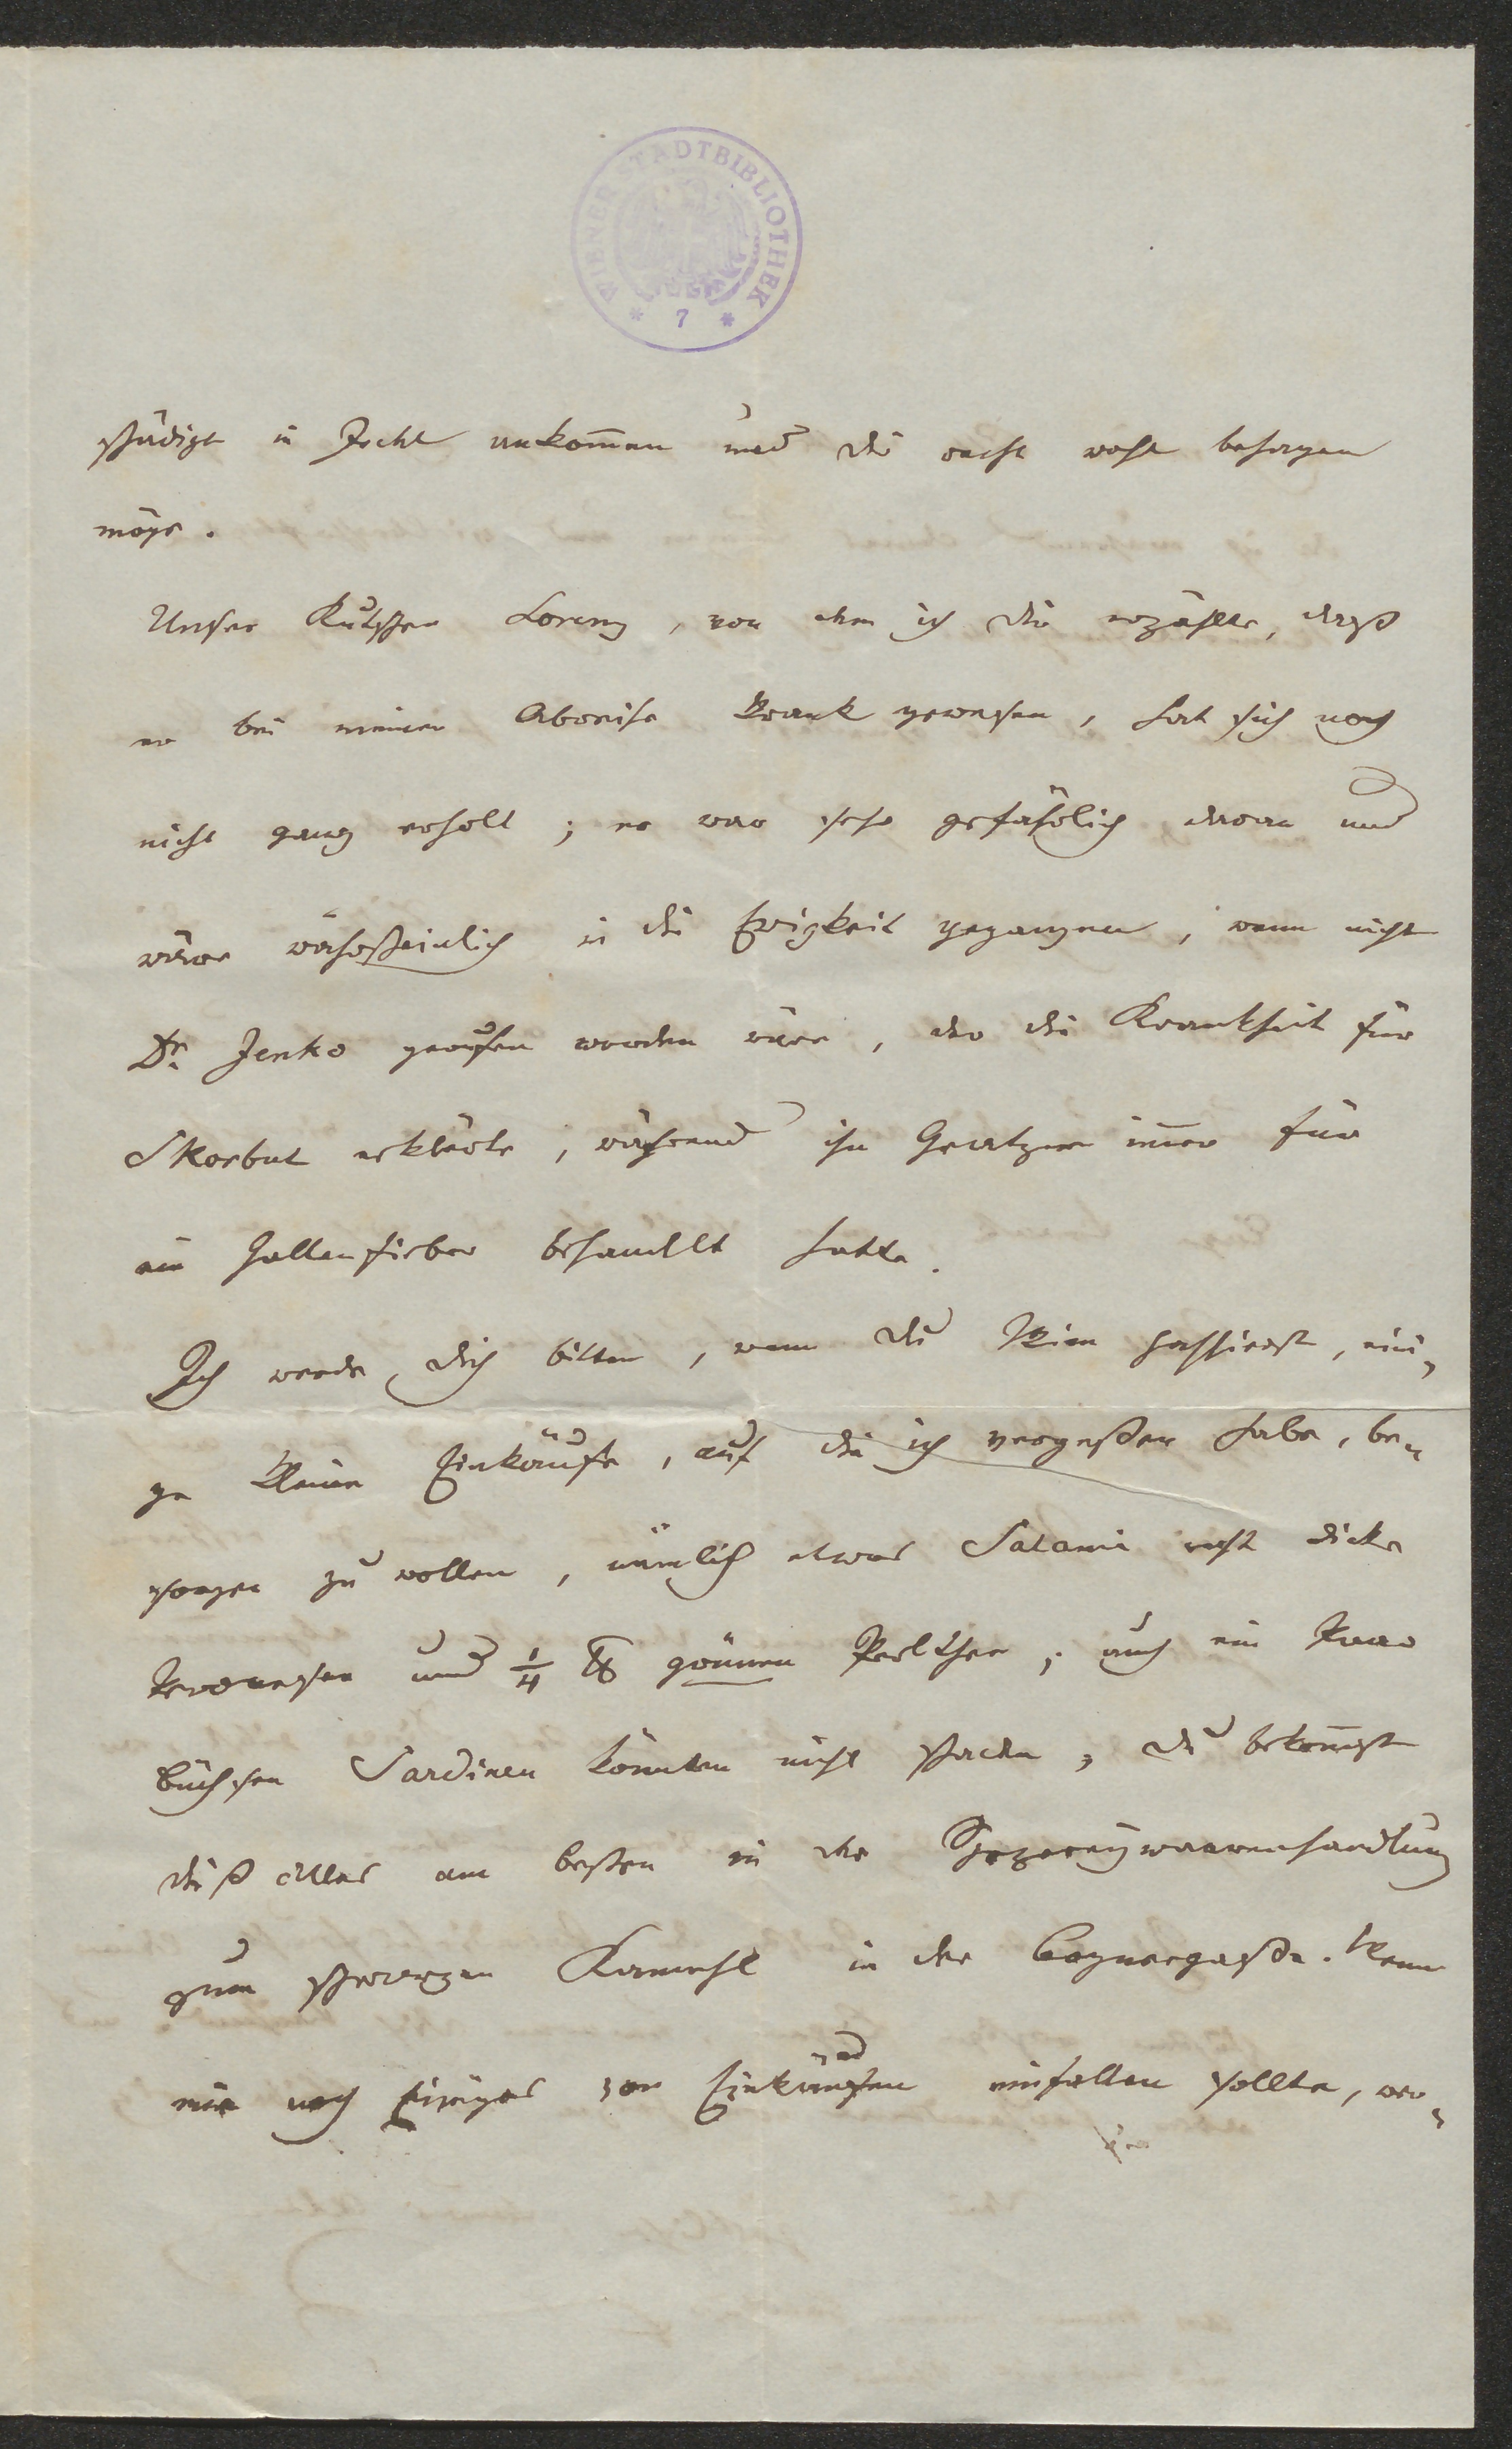 WIENER STADTBIBLIOTHEK
* 7 *
schädigt in Ischl ankom̄en und dir recht wohl behagen
möge.
Unser Kutscher Lorenz, von dem ich dir erzählte, daß
er bei meiner Abreise krank gewesen, hat sich noch
nicht ganz erholt; er war sehr gefährlich daran und
wäre wahrscheinlich in die Ewigkeit gegangen, wenn nicht
Dr. Jenko gerufen worden wäre, der die Krankheit für
Skorbut erklärte, während ihn Gratzer im̄er für
ein Gallenfieber behandelt hatte.
Ich werde dich bitten, wenn du Wien passierst, eini-
ge kleine Einkäufe, auf die ich vergeßen habe, be-
sorgen zu wollen, nämlich etwas Salami recht dicke
Veroneser und 1/4 ℔ grünen Perlthee; auch ein Paar
Büchsen Sardinen könnten nicht schaden, du bekom̄st
diß Alles am besten in der Spezereywaarenhandlung
zum schwarzen Kameehl in der Bognergaße. Wenn
mir noch Einiges von Einkäufen einfallen sollte, wer-